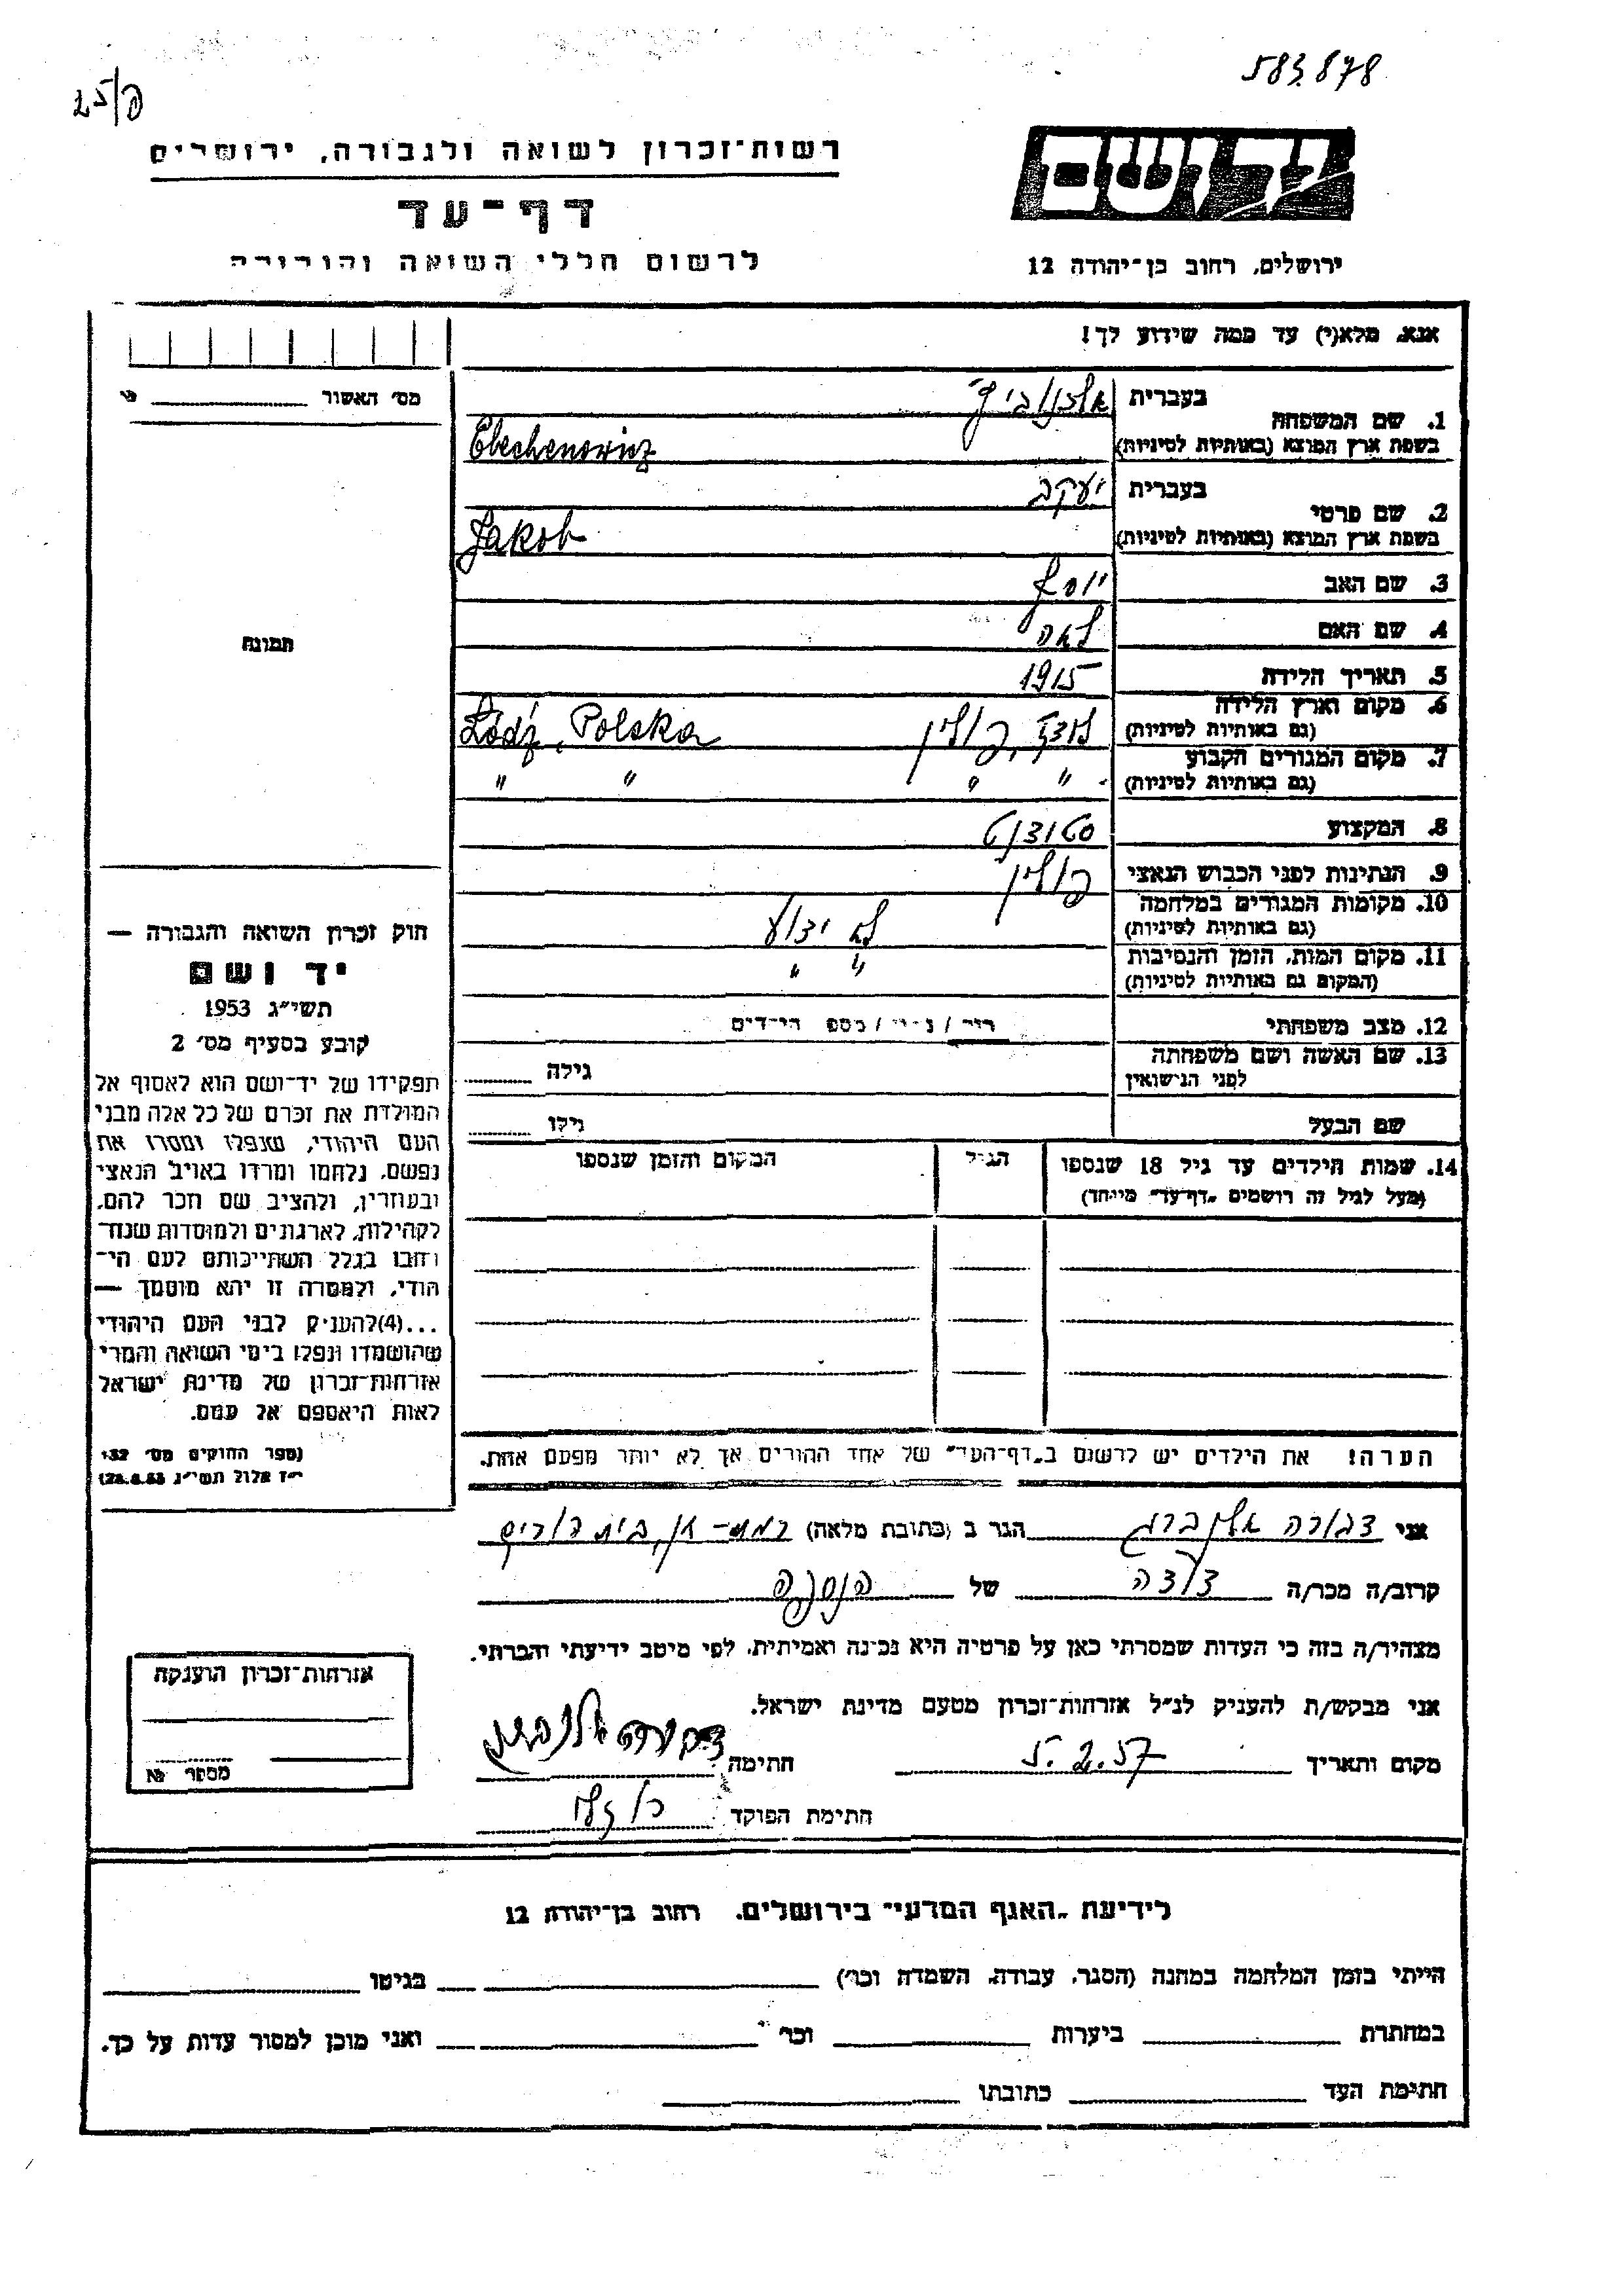 583.878
25/פ
רשות־זכרון לשואה ולגבורה, ירושלים
דף־עד
לרשום חללי השואה והגבורה
יד ושם
ירושלים, רחוב בן־יהודה 12
אנא, מלא(י) עד כמה שידוע לך!
מס׳ האשור
1. שם המשפחה
בעברית
בשפת ארץ המוצא (באותיות לטיניות)
Elechenowicz
2. שם פרטי
בעברית יעקב
בשפת ארץ המוצא (באותיות לטיניות) Jakob
3. שם האב יוסף
4. שם האם לאה
5. תאריך הלידה 1915
6. מקום וארץ הלידה (גם באותיות לטיניות) לודז, פולין Łódź, Polska
7. מקום המגורים הקבוע (גם באותיות לטיניות) " " " "
8. המקצוע סטודנט
9. הנתינות לפני הכבוש הנאצי פולין
10. מקומות המגורים במלחמה (גם באותיות לטיניות) לא ידוע
11. מקום המות, הזמן והנסיבות (המקום גם באותיות לטיניות) " "
12. מצב משפחתי רוק / נשוי / מספר הילדים
13. שם האשה ושם משפחתה לפני הנישואין
גילה
שם הבעל
גילו
14. שמות הילדים עד גיל 18 שנספו
(מעל לגיל זה רושמים „דף־עד" מיוחד)
הגיל
המקום והזמן שנספו
הערה! את הילדים יש לרשום ב„דף־העד" של אחד ההורים אך לא יותר מפעם אחת.
תמונה
חוק זכרון השואה והגבורה —
יד ושם
תשי״ג 1953
קובע בסעיף מס׳ 2
תפקידו של יד־ושם הוא לאסוף אל
המולדת את זכרם של כל אלה מבני
העם היהודי, שנפלו ומסרו את
נפשם, נלחמו ומרדו באויב הנאצי
ובעוזריו, ולהציב שם וזכר להם,
לקהילות, לארגונים ולמוסדות שנח־
רבו בגלל השתייכותם לעם הי־
הודי, ולמטרה זו יהא מוסמך —
...(4) להעניק לבני העם היהודי
שהושמדו ונפלו בימי השואה והמרי
אזרחות־זכרון של מדינת ישראל
לאות היאספם אל עמם.
(ספר החוקים מס׳ 132
י״ז אלול תשי״ג 28.8.53)
אני דבורה אלנברג הגר ב (כתובת מלאה) רמת-גן,
קרוב/ה מכר/ה דודה של הנספה
מצהיר/ה בזה כי העדות שמסרתי כאן על פרטיה היא נכונה ואמיתית, לפי מיטב ידיעתי והכרתי.
אני מבקש/ת להעניק לנ״ל אזרחות־זכרון מטעם מדינת ישראל.
מקום ותאריך 5.2.57 חתימה דבורה אלנברג
חתימת הפוקד
אזרחות־זכרון הוענקה
מספר №
לידיעת „האגף המדעי" בירושלים, רחוב בן־יהודה 12
הייתי בזמן המלחמה במחנה (הסגר, עבודה, השמדה וכו׳) בגיטו
במחתרת ביערות וכו׳ ואני מוכן למסור עדות על כך.
חתימת העד כתובתו